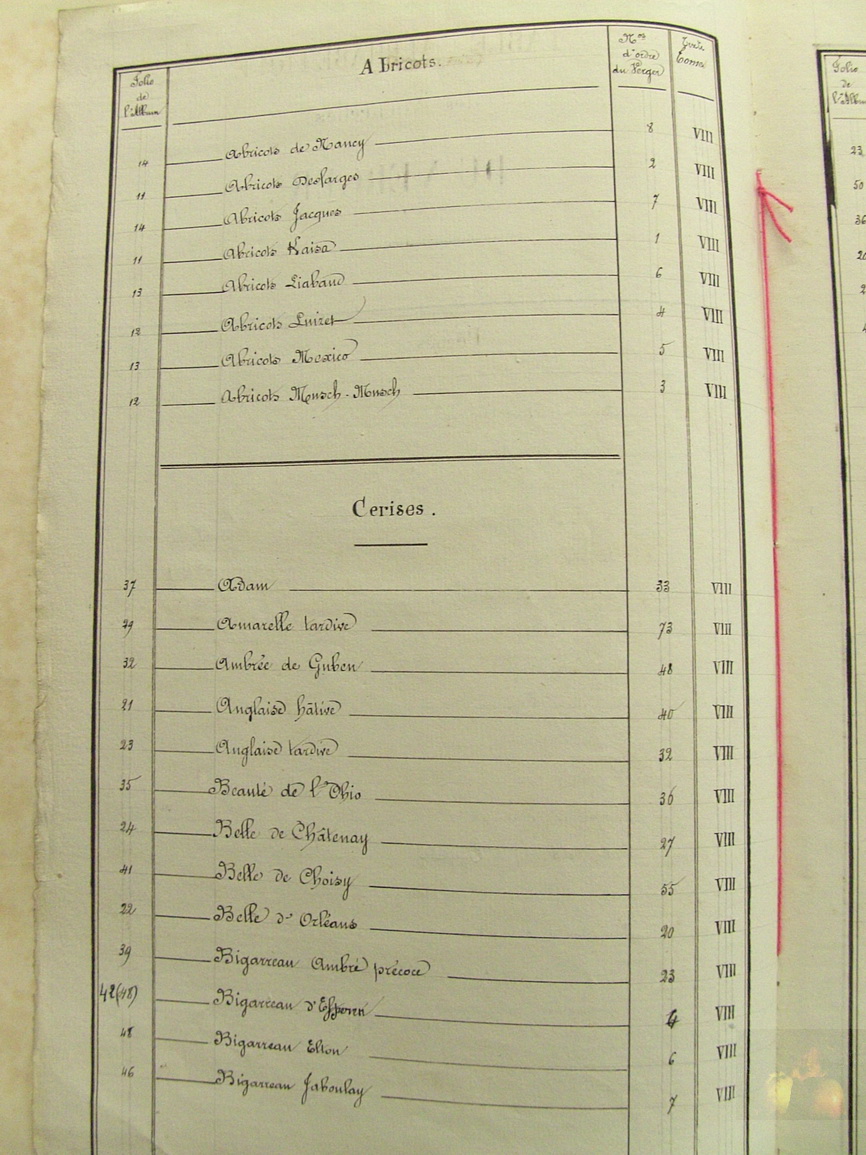 Abricots.
Folio de l'Album
Nos d'ordre du Verger
Tome
14 Abricots de Nancy 8 VIII
11 Abricots Desfarges 2 VIII
14 Abricots Jacques 7 VIII
11 Abricots Kaisa 1 VIII
13 Abricots Liabaud 6 VIII
12 Abricots Luizet 4 VIII
13 Abricots Mexico 5 VIII
12 Abricots Musch-Musch 3 VIII
Cerises.
37 Adam 33 VIII
29 Amarelle tardive 73 VIII
32 Ambrée de Guben 48 VIII
21 Anglaise hâtive 40 VIII
23 Anglaise tardive 32 VIII
35 Beauté de l'Ohio 36 VIII
24 Belle de Châtenay 27 VIII
41 Belle de Choisy 55 VIII
22 Belle d'Orléans 20 VIII
39 Bigarreau Ambré précoce 23 VIII
42(48) Bigarreau d'Esperen 4 VIII
48 Bigarreau Elton 6 VIII
46 Bigarreau Jaboulay 7 VIII
Folio de l'Album
23
50
36